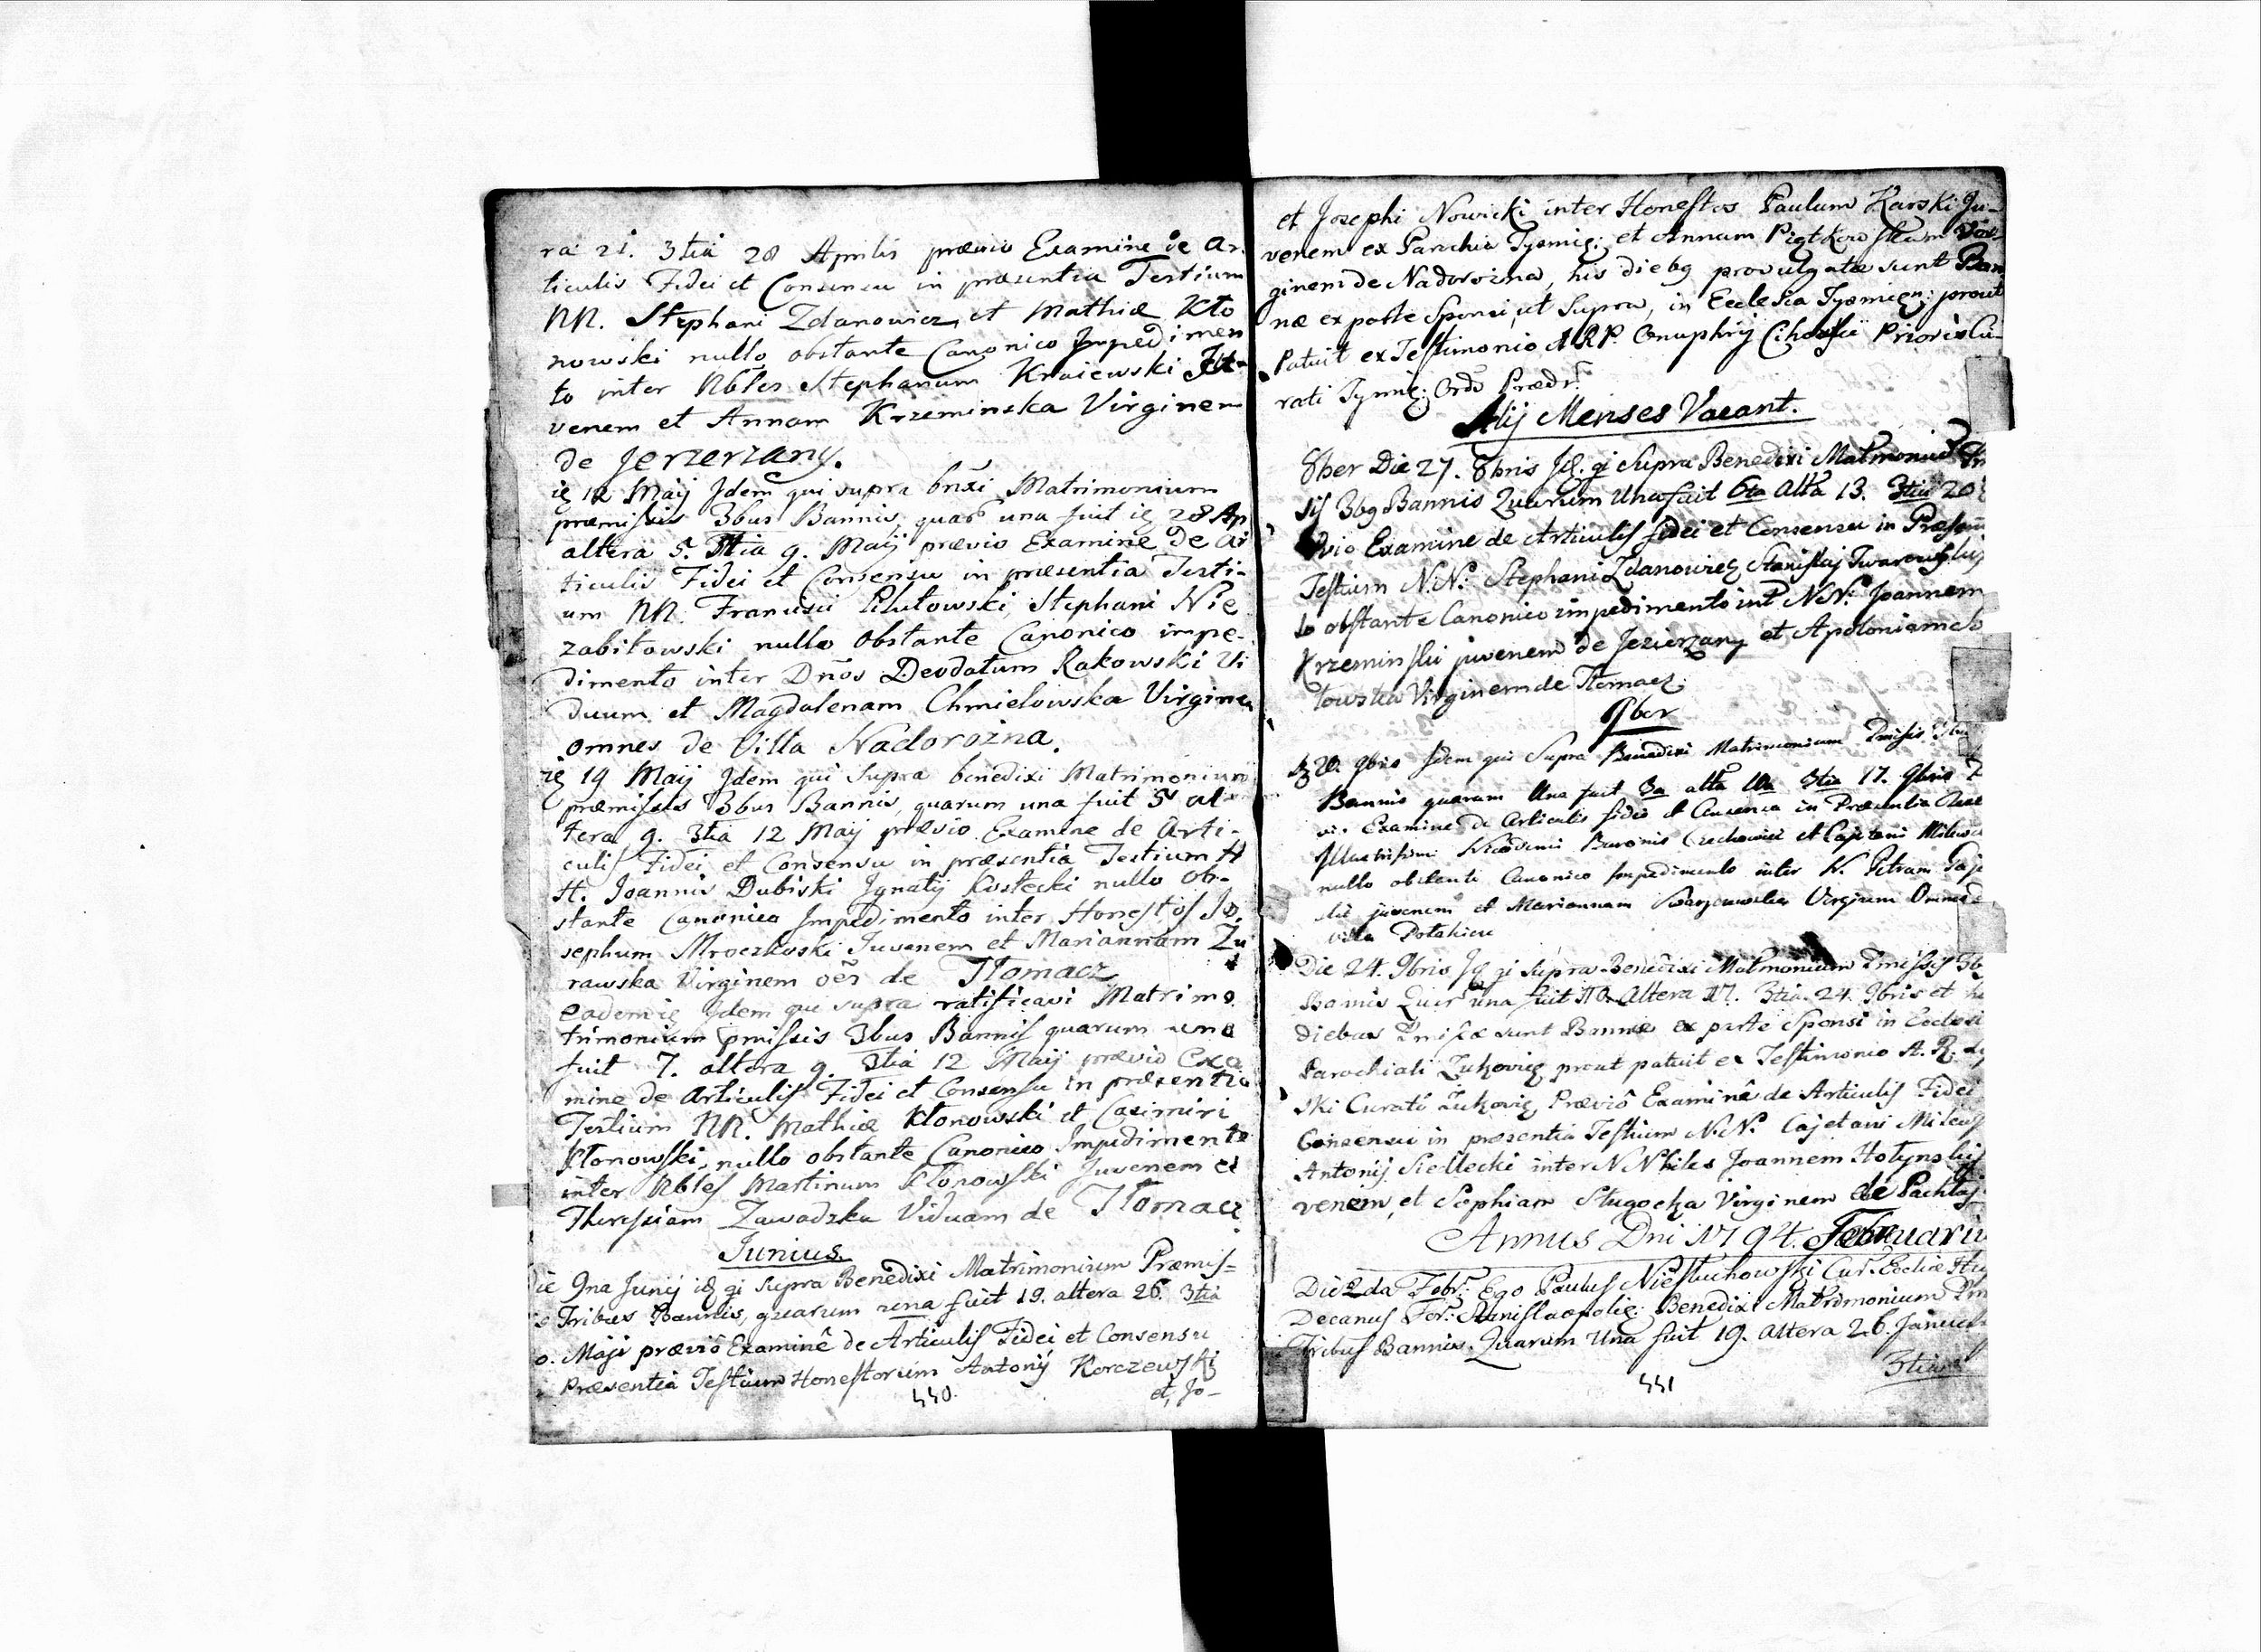 ra 21. 3tia 28 Aprilis prævio Examine de Ar-
ticulis Fidei et Consensu in præsentia Testium
NN. Stephani Zdanowicz et Mathiæ Kło
nowski nullo obstante Canonico Impedimen
to inter Nbles Stephanum Kraiewski Ju-
venem et Annam Krzeminska Virginem
de Jerzerzany.
ie 12 Maij Jdem qui supra bnxi Matrimonium
præmissis 3bus Bannis, quar una fuit ie 28 Ap
altera 5. 3tia 9. Maij prævio Examine De Ar
ticulis Fidei et Consensu in præsentia Testi-
um NN. Francisci Pilutowski, Stephani Nie
zabitowski nullo obstante Canonico impe-
dimento inter Dnos Deodatum Rakowski Vi
duum et Magdalenam Chmielowska Virginem
omnes de Villa Nadorożna.
ie 19 Maij Jdem qui supra benedixi Matrimonium
præmissis 3bus Bannis, quarum una fuit 5 al-
tera 9. 3tia 12 Maij prævio Examine de Arti-
culis Fidei et Consensu in præsentia Testium H
H. Joannis Dubiski Jgnatij Kostecki nullo ob-
stante Canonico Impedimento inter Honestos Jo.
sephum Mroczkoski Juvenem et Mariannam Żu
rawska Virginem oẽs de Tłomacz
eadem ie Jdem qui supra ratificavi Matrimo
trimonium pmissis 3bus Bannis quarum una
fuit 7. altera 9. 3tia 12 Maij prævio Exa
mine de Articulis Fidei et Consensu in præsentia
Testium NN. Mathiæ Kłonowski et Casimiri
Kłonowski, nullo obstante Canonico Impedimento
inter Nbles Martinum Kłonowski Juvenem et
Theresiam Zawadzka Viduam de Tłomacz
Junius
ie 9na Junij ide qi supra Benedixi Matrimonium Præmis=
s Tribus Bannis, quarum una fuit 19. altera 26. 3tia
o. Maji prævio Examine de Articulis Fidei et Consensu
Præsentia Testium Honestorum Antonij Korczewski
et, Jo-
440.
et Josephi Nowicki inter Honestos Paulum Karski Ju-
venem ex Parochia Tysmie; et Annam Piątkowskam Vir-
ginem de Nadorożna, his diebq provulgatæ sunt Ban
næ ex parte Sponsi, ut Supra, in Ecclesia Tysmien; prout
Patuit ex Testimonio A RP. Onuphrij Prioris Cu-
rati Tysmie: Ord Præd:
Alij Menses Vacant.
8ber Die 27. 8bris Jd. qi Supra Benedixi Matmonium
sis 3bq Bannis Quarum Una fuit 6ta Alta 13. 3tia 20
vio Examine de Articulis fidei et Consensu in Præsen
Testium N.N: Stephani Zdanowicz Stanislaj
lo obstante Canonico impedimento int N.N: Joannem
Krzeminski juvenem de Jezierzany et Apoloniam
towska Virginem de Tłomacz.
9ber
20. 9bris Jdem qui Supra Benedixi Matrimonium Pmissis
Bannis quarum Una fuit 3a alta 10a 3tia 17. 9bris
vio Examine de Articulis fidei et Consensu in Præsentia
Illustrissimi Baronis Czechowicz et Cajetani
nullo obstante Canonico Impedimento inter N. Petrum
juvenem et Mariannam Virginem Omnes
villa
Die 24. 9bris Jd qi Supra Benedixi Matmonium Pmissis 3b
Bannis Quar una fuit 10. Altera 17. 3tia 24. 9bris et
diebus Pmissæ sunt Bannæ ex parte Sponsi in Ecclesi
Parochiali prout patuit ex Testimonio A. R.
ski Curati Prævio Examine de Articulis Fidei
Consensu in præsentia Testium N.N: Cajetani
Antonij Siedlecki inter N Nbiles Joannem
venem, et Sophiam Virginem de
Annus Dni 1794. Februariu
Die 2da Febr: Ego Paulus Niestuchowski Cur. Eccliæ
Decanus For: Stanislaopolie: Benedixi Matrimonium Pm
Tribus Bannis. Quarum Una fuit 19. altera 26. Januar
3tia
441